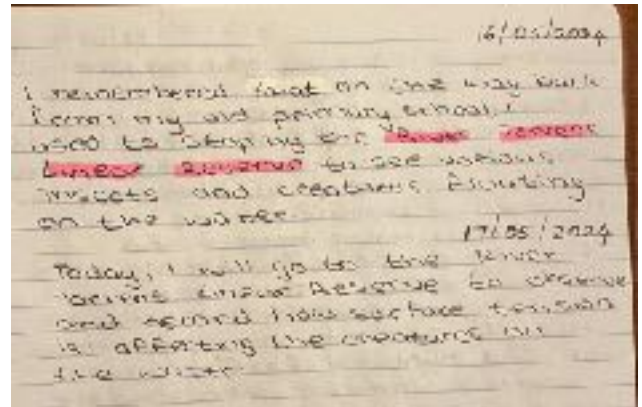 16/05/2024
I remembered that on the way back
from my old primary school I
used to stop by the River
Linear Reserve to see various
insects and creatures floating
on the water
17/05/2024
Today, I will go to the River
Linear Reserve to observe
and record how surface tension
is affecting the creatures on
the water